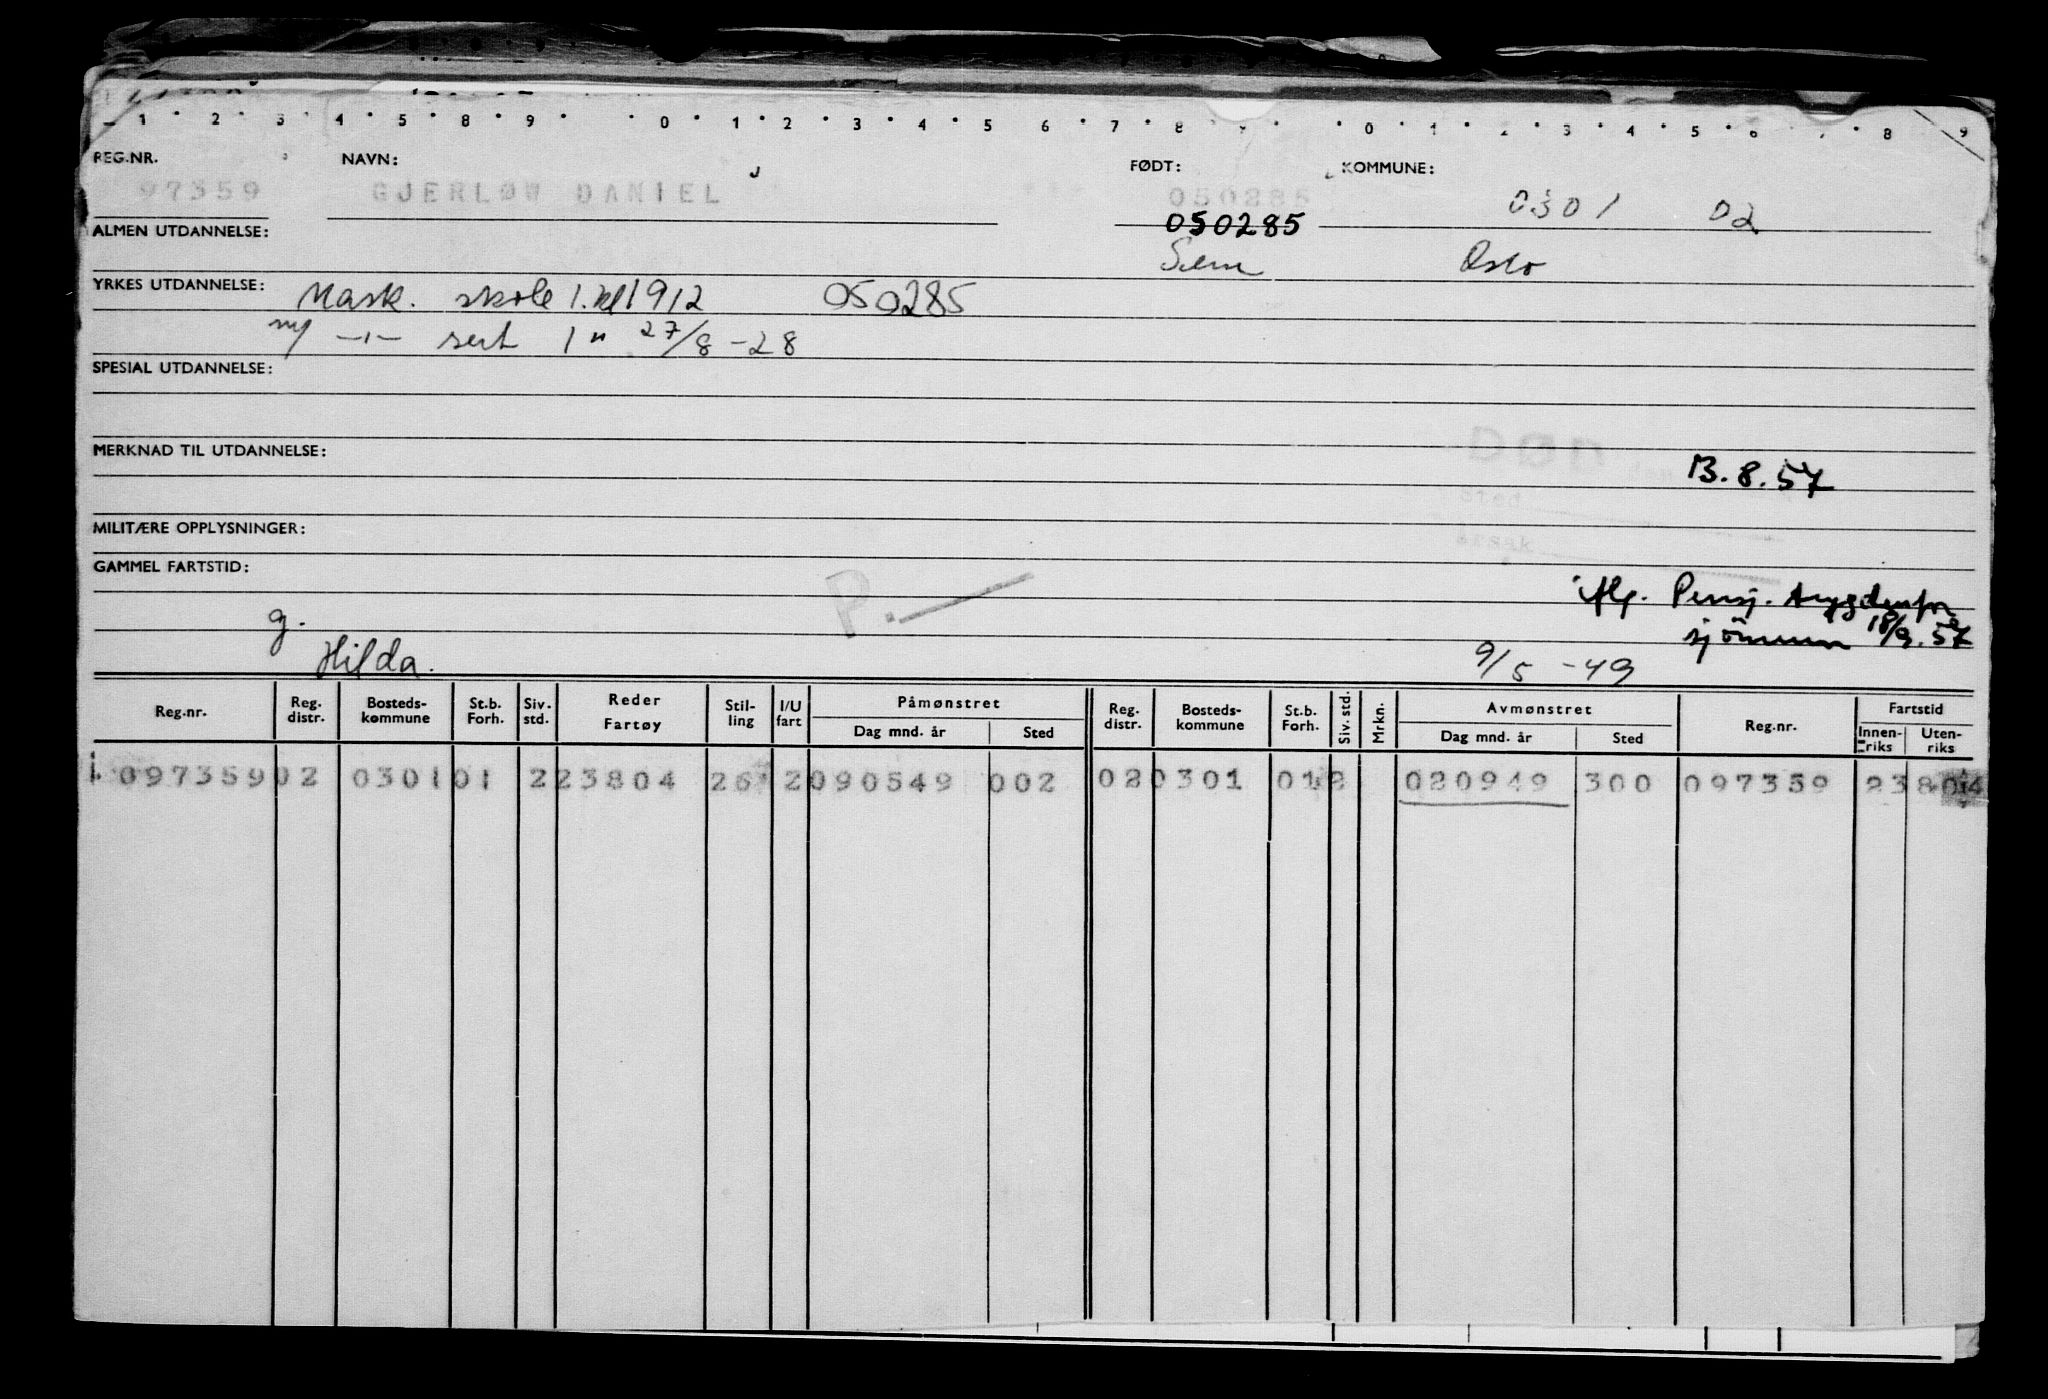 1 2 3 4 5 8 9 0 1 2 3 4 5 6 7 8 9 0 1 2 3 4 5 6 7 8 9
REG.NR. NAVN: FØDT: KOMMUNE:
97359 GJERLØW DANIEL 050285 0301 02
050285
ALMEN UTDANNELSE: Sem Oslo
YRKES UTDANNELSE: Mask. skole 1. kl 1912 050285
sert 1 " 27/8 -28
SPESIAL UTDANNELSE:
MERKNAD TIL UTDANNELSE: DØD
13.8.57
sted
MILITÆRE OPPLYSNINGER:
årsak
GAMMEL FARTSTID:
P. —
iflg. Pensj. trygden for
sjömenn 18/9.57
g. Hilda. 9/5 -49
Reg.nr. Reg. distr. Bosteds-kommune St.b. Forh. Siv. std. Reder Fartøy Stil-ling I/U fart Påmønstret Dag mnd. år Sted Reg. distr. Bosteds-kommune St.b. Forh. Siv. std. Mrkn. Avmønstret Dag mnd. år Sted Reg.nr. Fartstid Innen-riks Uten-riks
097359 02 0301 01 2 23804 26 2 090549 002 02 0301 01 2 020949 300 097359 23804